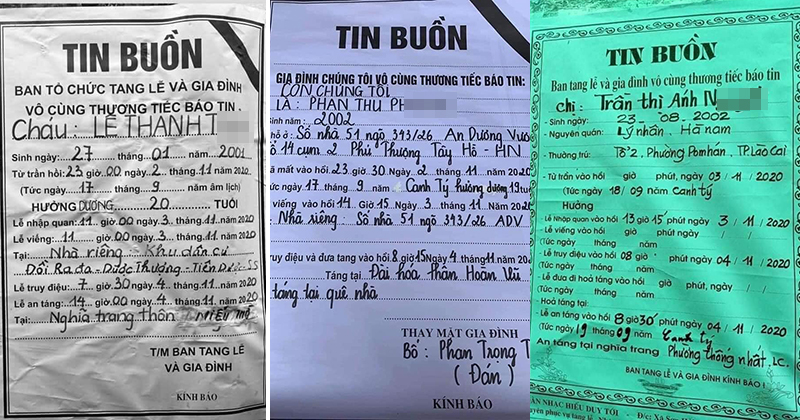 TIN BUỒN
BAN TỔ CHỨC TANG LỄ VÀ GIA ĐÌNH
VÔ CÙNG THƯƠNG TIẾC BÁO TIN
Cháu: LÊ THANH T
Sinh ngày: 27 tháng 01 năm 2001
Từ trần hồi: 23 giờ 00 ngày 2 tháng 11 năm 2020
(Tức ngày 17 tháng 9 năm âm lịch)
HƯỞNG DƯƠNG 20 TUỔI
Lễ nhập quan: 11 giờ 00 ngày 3 tháng 11 năm 2020
Lễ viếng: 11 giờ 00 ngày 3 tháng 11 năm 2020
Tại: Nhà riêng - Khu dân cư
Dược Thượng - Tiên Dược - SS
Lễ truy điệu: 7 giờ 30 ngày 4 tháng 11 năm 2020
Lễ an táng: 14 giờ 00 ngày 4 tháng 11 năm 2020
Tại: Nghĩa trang thôn
T/M BAN TANG LỄ
VÀ GIA ĐÌNH
KÍNH BÁO
TIN BUỒN
GIA ĐÌNH CHÚNG TÔI VÔ CÙNG THƯƠNG TIẾC BÁO TIN:
CON CHÚNG TÔI
LÀ: PHAN THU PH
Sinh năm: 2002
hỗ ở: Số nhà 51 ngõ 343/26 An Dương Vươ
ổ 14 cụm 2 Phú Thượng Tây Hồ - HN
ã mất vào hồi 23 giờ 30 Ngày 2 tháng 11 Năm 2020
ức ngày 17 tháng 9 năm Canh Tý hưởng dương 19 tu
viếng vào hồi 14 giờ 15 Ngày 3 tháng 11 Năm 2020
Nhà riêng: Số nhà 51 ngõ 343/26 ADV
truy điệu và đưa tang vào hồi 8 giờ 15 Ngày 4 tháng 11 năm 2020
Táng tại: Đài hóa thân Hoàn Vũ
táng tại quê nhà
THAY MẶT GIA ĐÌNH
Bố: Phan Trọng T
(Đán)
KÍNH BÁO
TIN BUỒN
Ban tang lễ và gia đình vô cùng thương tiếc báo tin
chị: Trần thị Anh N
- Sinh ngày: 23 - 08 - 2002
- Nguyên quán: Lý nhân - Hà nam
- Thường trú: Tổ 2, Phường Pom hán, TP Lào Cai
- Từ trần vào hồi giờ phút, ngày 03 / 11 / 2020
(Tức ngày 18 / 09 năm Canh tý
Hưởng
- Lễ Nhập quan vào hồi 13 giờ 15 phút ngày 3 / 11 / 2020
- Lễ viếng vào hồi giờ phút ngày
(Tức ngày tháng năm
- Lễ truy điệu vào hồi 08 giờ phút ngày 04 / 11 / 2020
(Tức ngày tháng năm
- Lễ đưa đi hoả táng hồi giờ phút, ngày
(Tức ngày tháng năm
Hoả táng tại:
- Lễ An táng vào hồi 8 giờ 30 phút ngày 04 / 11 / 2020
(Tức ngày 19 tháng 09 năm Canh tý
An táng tại nghĩa trang Phường thống nhất. LC.
BAN TANG LỄ VÀ GIA ĐÌNH KÍNH BÁO!
NHẠC HIẾU DUY TÔI